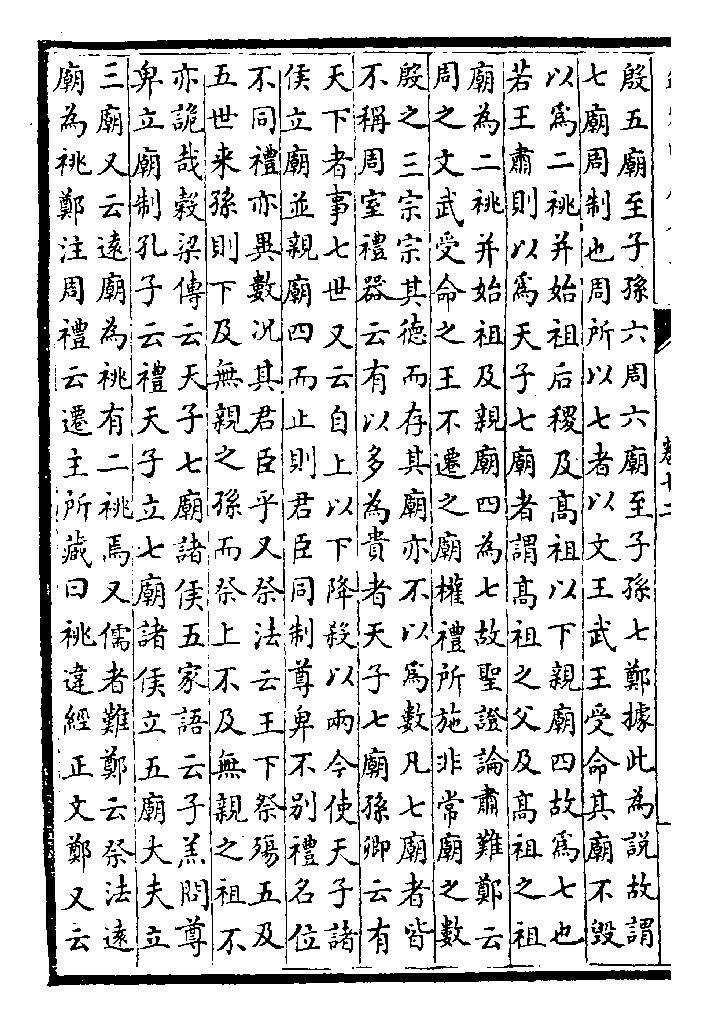 殷五廟至子孫六周六廟至子孫七鄭據此為說故謂
七廟周制也周所以七者以文王武王受命其廟不毀
以爲二祧并始祖后稷及髙祖以下親廟四故爲七也
若王肅則以爲天子七廟者謂髙祖之父及髙祖之祖
廟為二祧并始祖及親廟四為七故聖證論肅難鄭云
周之文武受命之王不遷之廟權禮所施非常廟之數
殷之三宗宗其德而存其廟亦不以爲數凡七廟者皆
不稱周室禮器云有以多為貴者天子七廟孫卿云有
天下者事七世又云自上以下降殺以兩今使天子諸
侯立廟並親廟四而止則君臣同制尊卑不别禮名位
不同禮亦異數况其君臣乎又祭法云王下祭殤五及
五世来孫則下及無親之孫而祭上不及無親之祖不
亦詭哉穀梁傳云天子七廟諸侯五家語云子羔問尊
卑立廟制孔子云禮天子立七廟諸侯立五廟大夫立
三廟又云遠廟為祧有二祧焉又儒者難鄭云祭法遠
廟為祧鄭注周禮云遷主所藏曰祧違經正文鄭又云